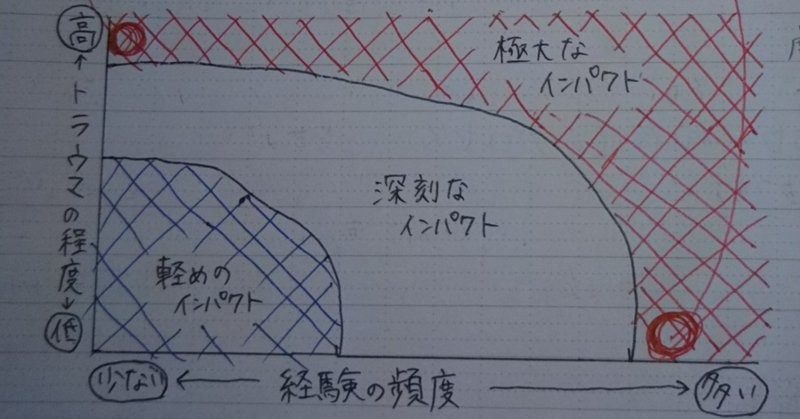 高
↑
トラウマの程度
↓
低
極大な
インパクト
深刻な
インパクト
軽めの
インパクト
少ない ← 経験の頻度 → 多い